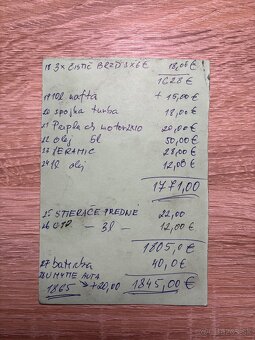 18 3x ČISTIČ BRZD 3x6€ 18,00€
1628 €
19 10l nafta + 15,00€
20 spojka turba 18,00€
21 motor 20,00€
22 olej 5l 50,00€
23 CERAMIC 28,00€
24 1l olej 12,00€
1771,00
25 STIERAČE PREDNÉ 22,00
26 - 3l - 12,00€
1805,0€
27 batinba 40,0€
28 UMYTIE AUTA
1865 → +20,00 1845,00€